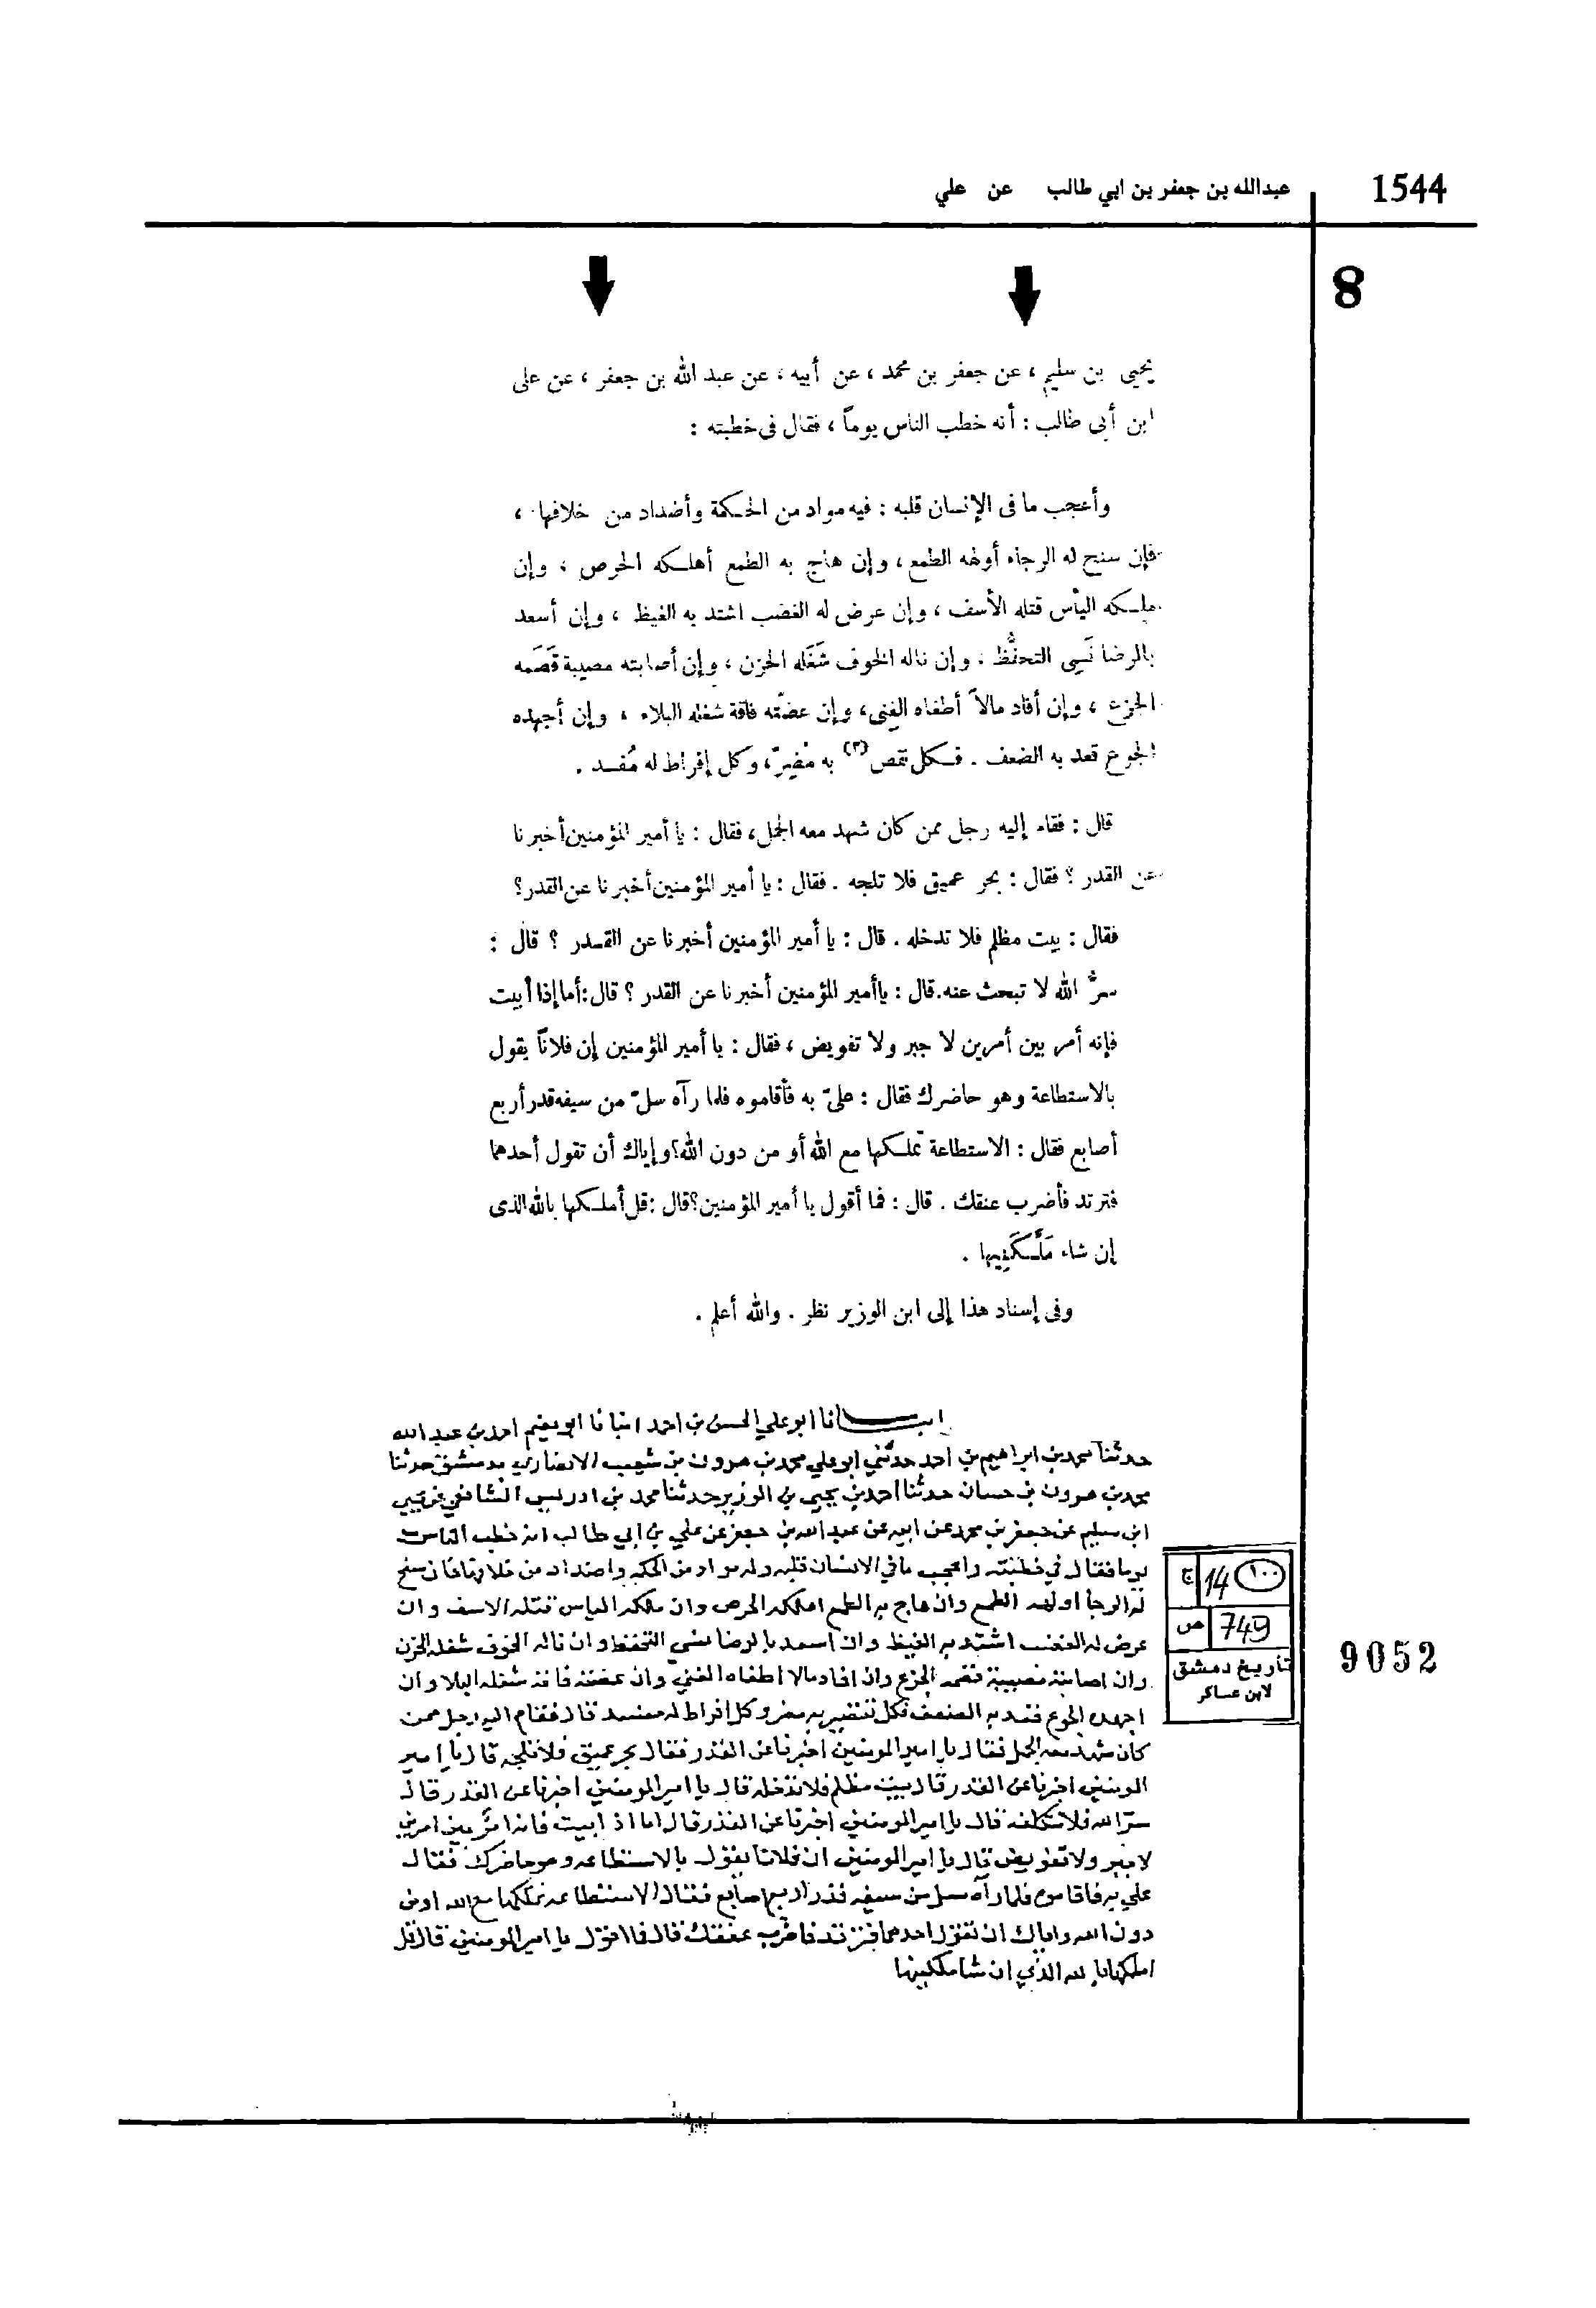 1544
عبدالله بن جعفر بن ابي طالب عن علي
8
يحيى بن سليم ، عن جعفر بن محمد ، عن أبيه ، عن عبد الله بن جعفر ، عن على
ابن أبى طالب : أنه خطب الناس يوماً ، فقال فى خطبته :
وأعجب ما فى الإنسان قلبه : فيه مواد من الحكمة وأضداد من خلافها ،
فإن سنح له الرجاء أولهه الطمع ، وإن هاج به الطمع أهلكه الحرص ، وإن
ملكه اليأس قتله الأسف ، وإن عرض له الغضب اشتد به الغيظ ، وإن أسعد
بالرضا نَسِى التحفُّظ ، وإن ناله الخوف شَغَله الحزن ، وإن أصابته مصيبة قَصَمه
الجزع ، وإن أفاد مالاً أطغاه الغنى ، وإن عضّته فاقة شغله البلاء ، وإن أجهده
الجوع قعد به الضعف . فكل تقص (٣) به مُضِرّ ، وكل إفراط له مُفسد .
قال : فقام إليه رجل ممن كان شهد معه الجمل ، فقال : يا أمير المؤمنين أخبرنا
عن القدر ؟ فقال : بحر عميق فلا تلجه . فقال : يا أمير المؤمنين أخبرنا عن القدر ؟
فقال : بيت مظلم فلا تدخله . قال : يا أمير المؤمنين أخبرنا عن القدر ؟ قال :
سرُّ الله لا تبحث عنه . قال : يا أمير المؤمنين أخبرنا عن القدر ؟ قال : أما إذا أبيت
فإنه أمر بين أمرين لا جبر ولا تفويض ، فقال : يا أمير المؤمنين إن فلاناً يقول
بالاستطاعة وهو حاضرك فقال : علىّ به فأقاموه فلما رآه سلّ من سيفه قدر أربع
أصابع فقال : الاستطاعة تملكها مع الله أو من دون الله ؟ وإياك أن تقول أحدهما
فترتد فأضرب عنقك . قال : فما أقول يا أمير المؤمنين ؟ قال : قل أملكها بالله الذى
إن شاء مَلَّكَنِيها .
وفى إسناد هذا إلى ابن الوزير نظر . والله أعلم .
انبـــانا ابو علي الحسن بن احمد انبانا ابو نعيم احمد بن عبد الله
حدثنا محمد بن ابراهيم بن احمد حدثني ابو علي محمد بن هرون بن شعيب الانصاري بدمشق حدثنا
محمد بن هرون بن حسان حدثنا احمد بن يحيى بن الوزير حدثنا محمد بن ادريس الشافعي عن يحيى
ابن سليم عن جعفر بن محمد عن ابيه عن عبد الله بن جعفر عن علي بن ابي طالب انه خطب الناس
يوما فقال في خطبته واعجب ما في الانسان قلبه وله مواد من الحكمة واضداد من خلافها فان سنح
له الرجا اولهه الطمع وان هاج به الطمع اهلكه الحرص وان ملكه الياس قتله الاسف وان
عرض له الغضب اشتد به الغيظ وان اسعد بالرضا نسي التحفظ وان ناله الخوف شغله الحزن
وان اصابته مصيبة قصمه الجزع وان افاد مالا اطغاه الغنى وان عضته فاقة شغله البلا وان
اجهده الجوع قعد به الضعف فكل تقصير به مضر وكل افراط له مفسد قال فقام اليه رجل ممن
كان شهد معه الجمل فقال يا امير المومنين اخبرنا عن القدر فقال بحر عميق فلا تلجه قال يا امير
المومنين اخبرنا عن القدر قال بيت مظلم فلا تدخله قال يا امير المومنين اخبرنا عن القدر قال
سر الله فلا تتكلفه قال يا امير المومنين اخبرنا عن القدر قال اما اذ ابيت فانه امر بين امرين
لا جبر ولا تفويض قال يا امير المومنين ان فلانا يقول بالاستطاعه وهو حاضرك فقال
علي به فاقاموه فلما رآه سل من سيفه قدر اربع اصابع فقال الاستطاعه تملكها مع الله او من
دون الله واياك ان تقول احدهما فترتد فاضرب عنقك قال فما اقول يا امير المومنين قال قل
املكها بالله الذي ان شا ملكنيها
ج 14 ١٠٠
ص 749
تأريخ دمشق
لابن عساكر
9052